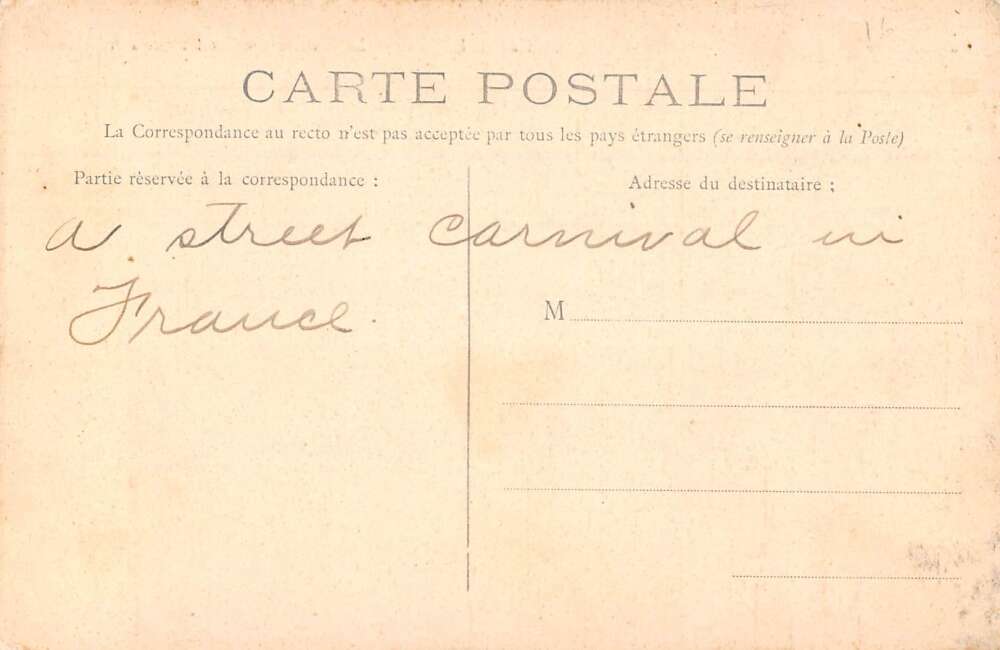 CARTE POSTALE
La Correspondance au recto n'est pas acceptée par tous les pays étrangers (se renseigner à la Poste)
Partie réservée à la correspondance :
Adresse du destinataire :
a street carnival in
France.
M